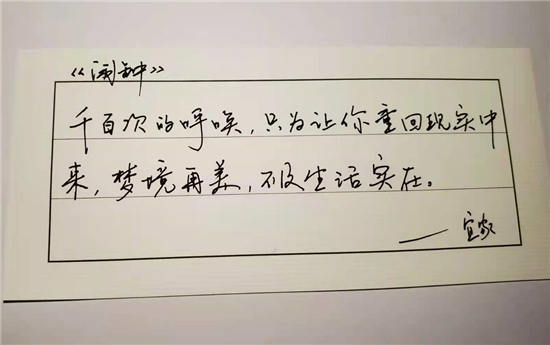 《闹钟》
千百次的呼唤,只为让你重回现实中
来,梦境再美,不及生活实在。
——宜家